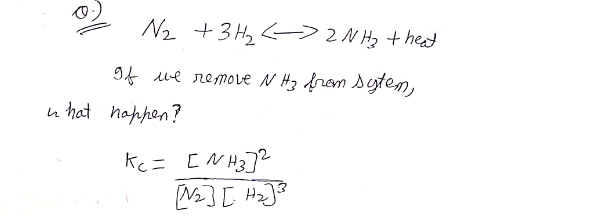 Q.)
N₂ + 3H₂ <—> 2 NH₃ + heat
If we remove NH₃ from system,
what happen?
Kc = [NH₃]² / [N₂] [H₂]³